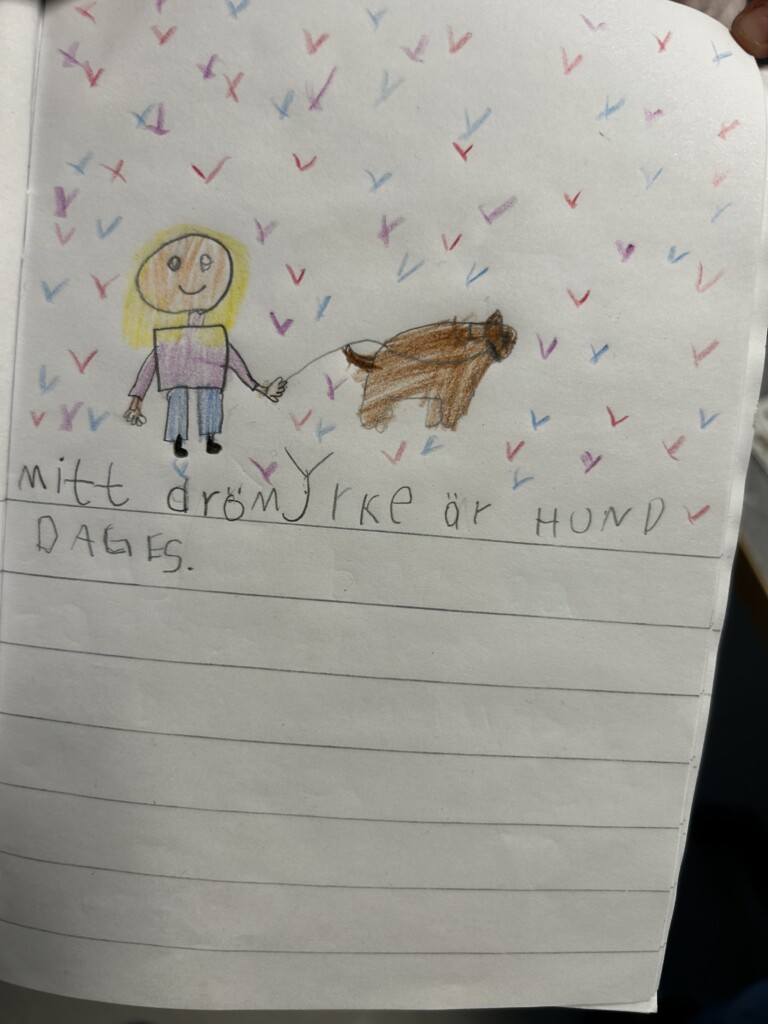 mitt drömYrKe är HUND
DAGES.